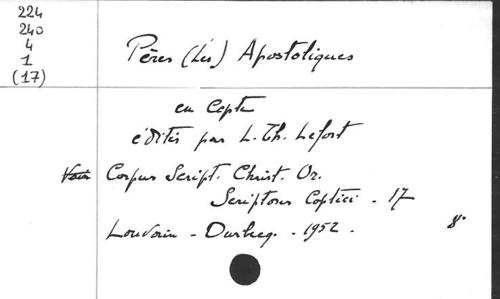 224
240
4
1
(17)
Pères (Les) Apostoliques
en Copte
édités par L. Th. Lefort
Voir Corpus Script. Christ. Or.
Scriptores Coptici - 17
Louvain - Durbecq. - 1952. 8°